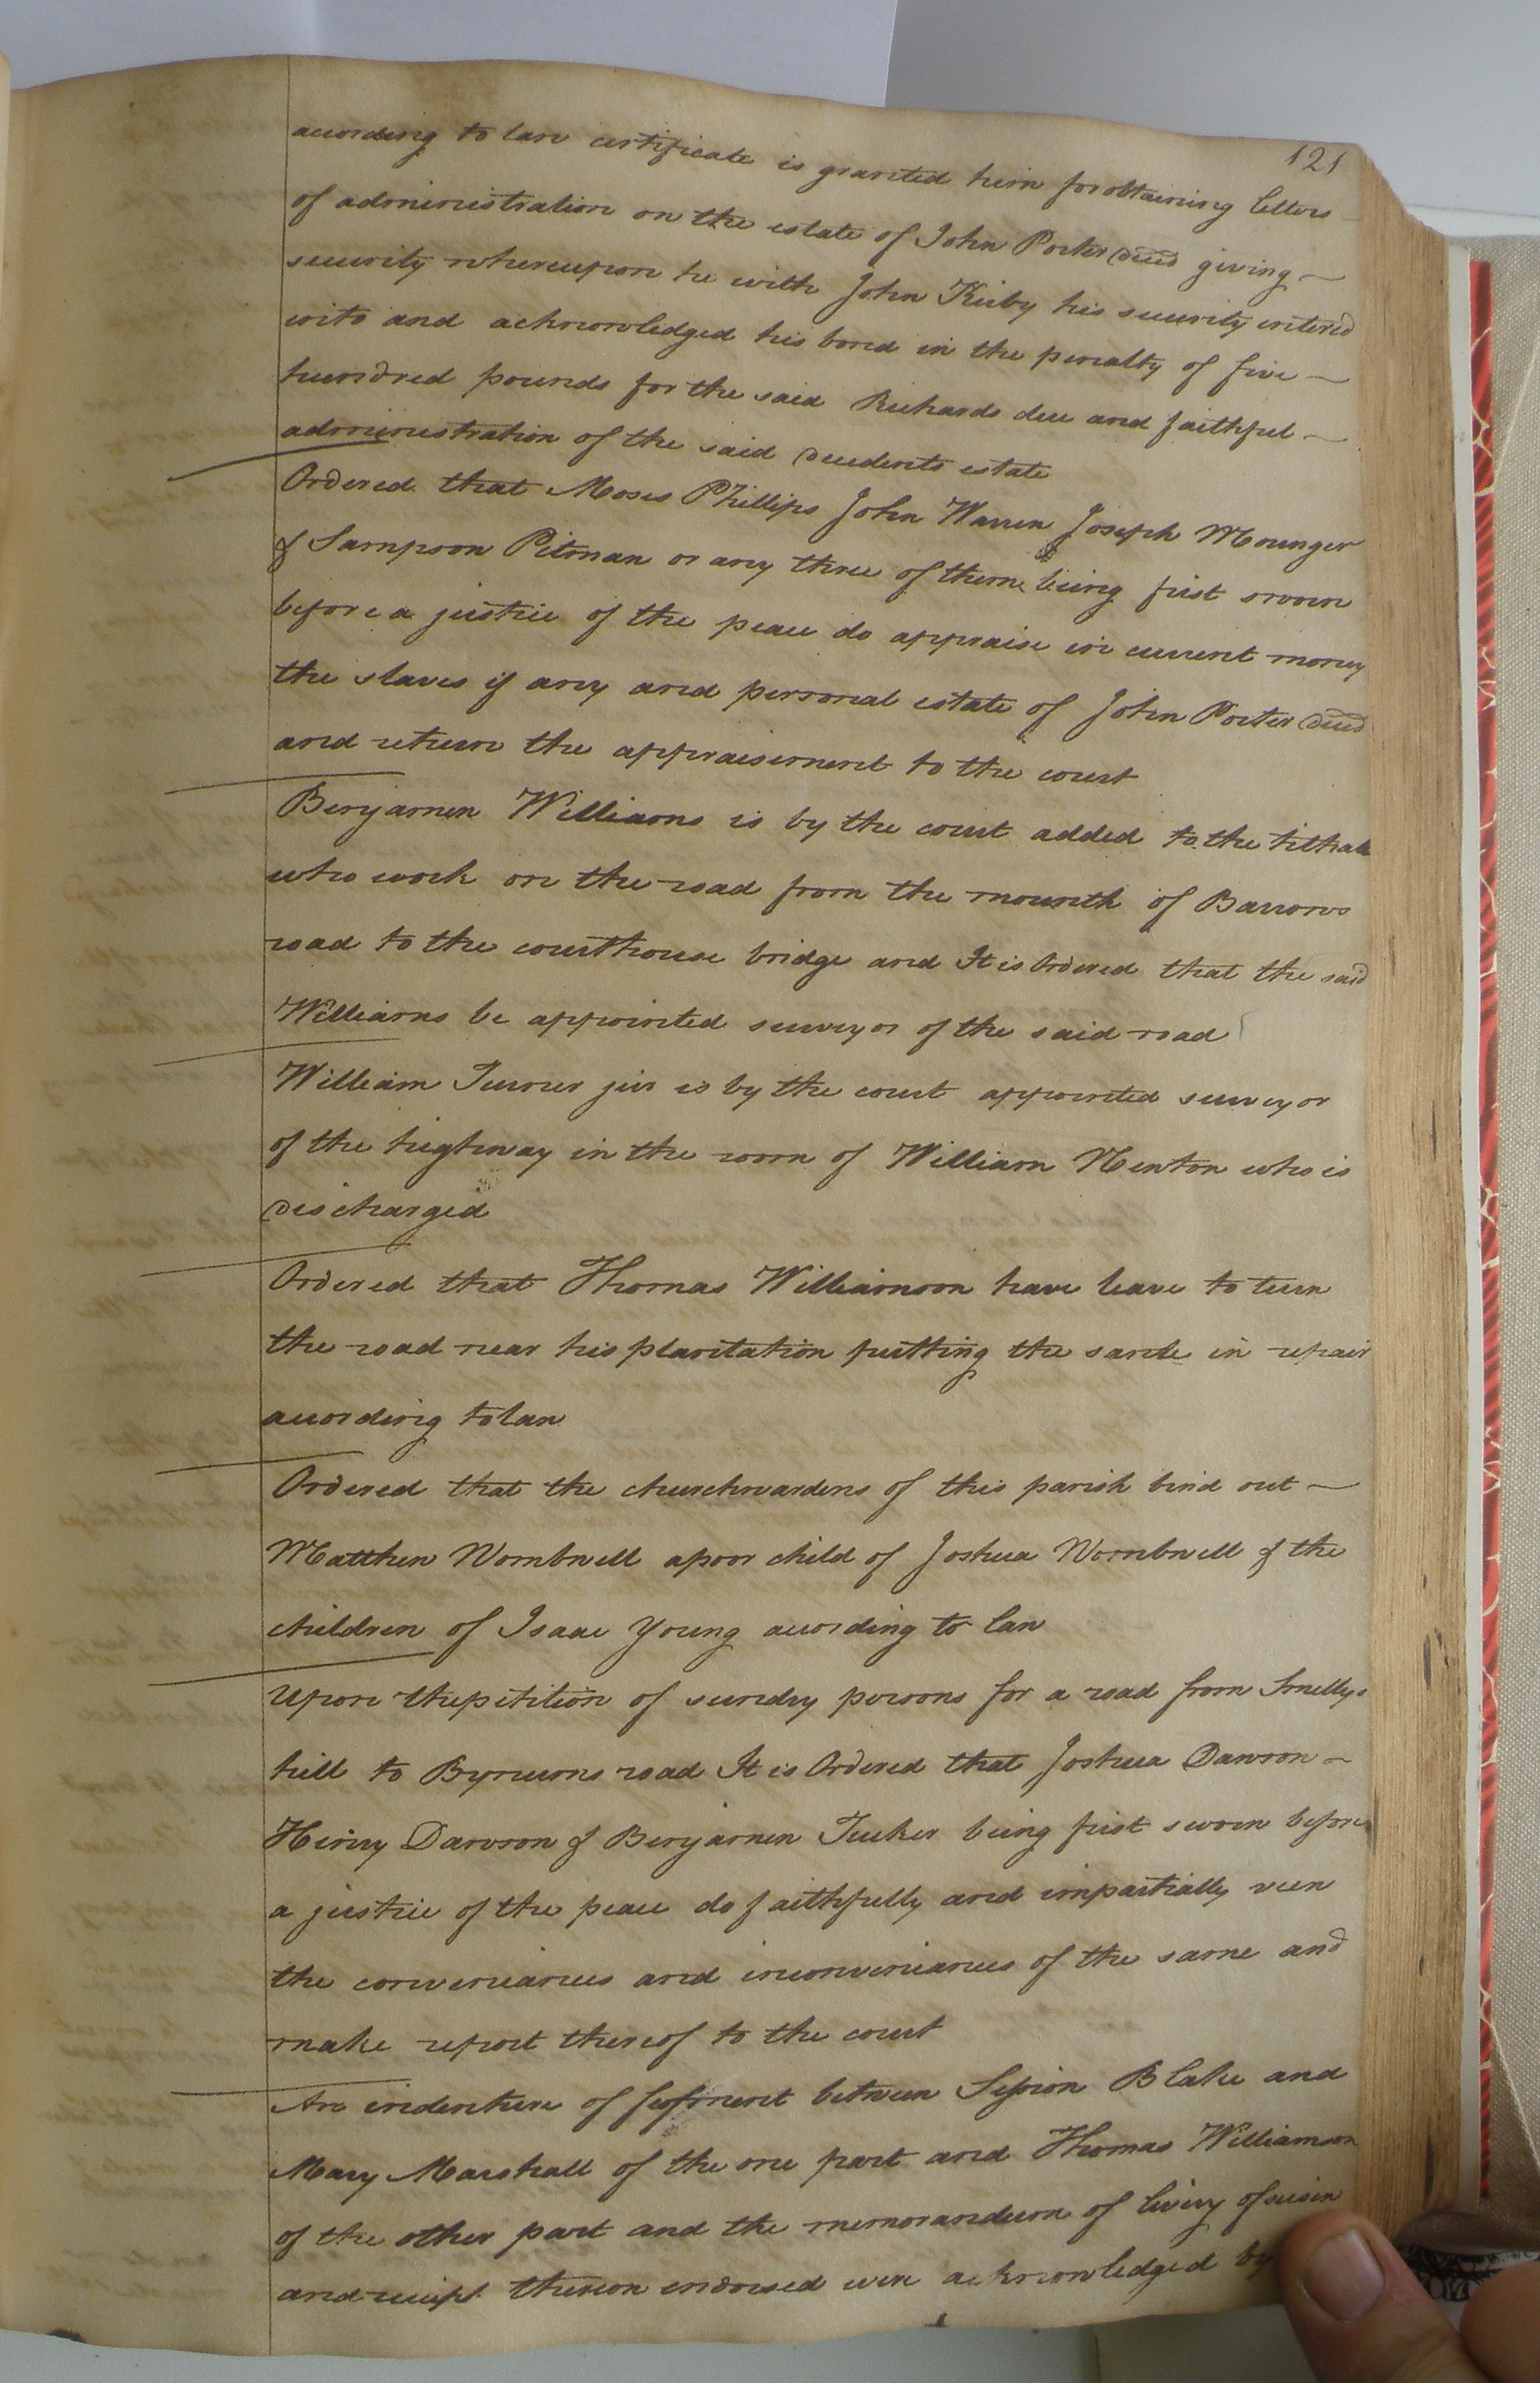 121
according to law certificate is granted him for obtaining letters
of administration on the estate of John Porter decd giving
security whereupon he with John Kirby his security entered
into and acknowledged his bond in the penalty of five
hundred pounds for the said Richards due and faithful
administration of the said decedents estate
Ordered that Moses Phillips John Warren Joseph Mounger
& Sampson Pitman or any three of them being first sworn
before a justice of the peace do appraise in current money
the slaves if any and personal estate of John Porter decd
and return the appraisement to the court
Benjamen Williams is by the court added to the tithab
who work on the road from the mounth of Barrows
road to the courthouse bridge and It is Ordered that the said
Williams be appointed surveyor of the said road
William Turner jur is by the court appointed surveyor
of the highway in the room of William Newton who is
discharged
Ordered that Thomas Williamson have leave to turn
the road near his plantation putting the same in repair
according to law
Ordered that the churchwardens of this parish bind out
Matthew Wombwell a poor child of Joshua Wombwell & the
children of Isaac Young according to law
Upon the petition of sundry persons for a road from Smellys
hill to Byrums road It is Ordered that Joshua Dawson
Henry Dawson & Benjamen Tucker being first sworn before
a justice of the peace do faithfully and impartially view
the conveniances and inconveniances of the same and
make report thereof to the court
An indenture of feofment between Session Blake and
Mary Marshall of the one part and Thomas Williamson
of the other part and the memorandum of livery of seisin
and reciept thereon endorsed were acknowledged by